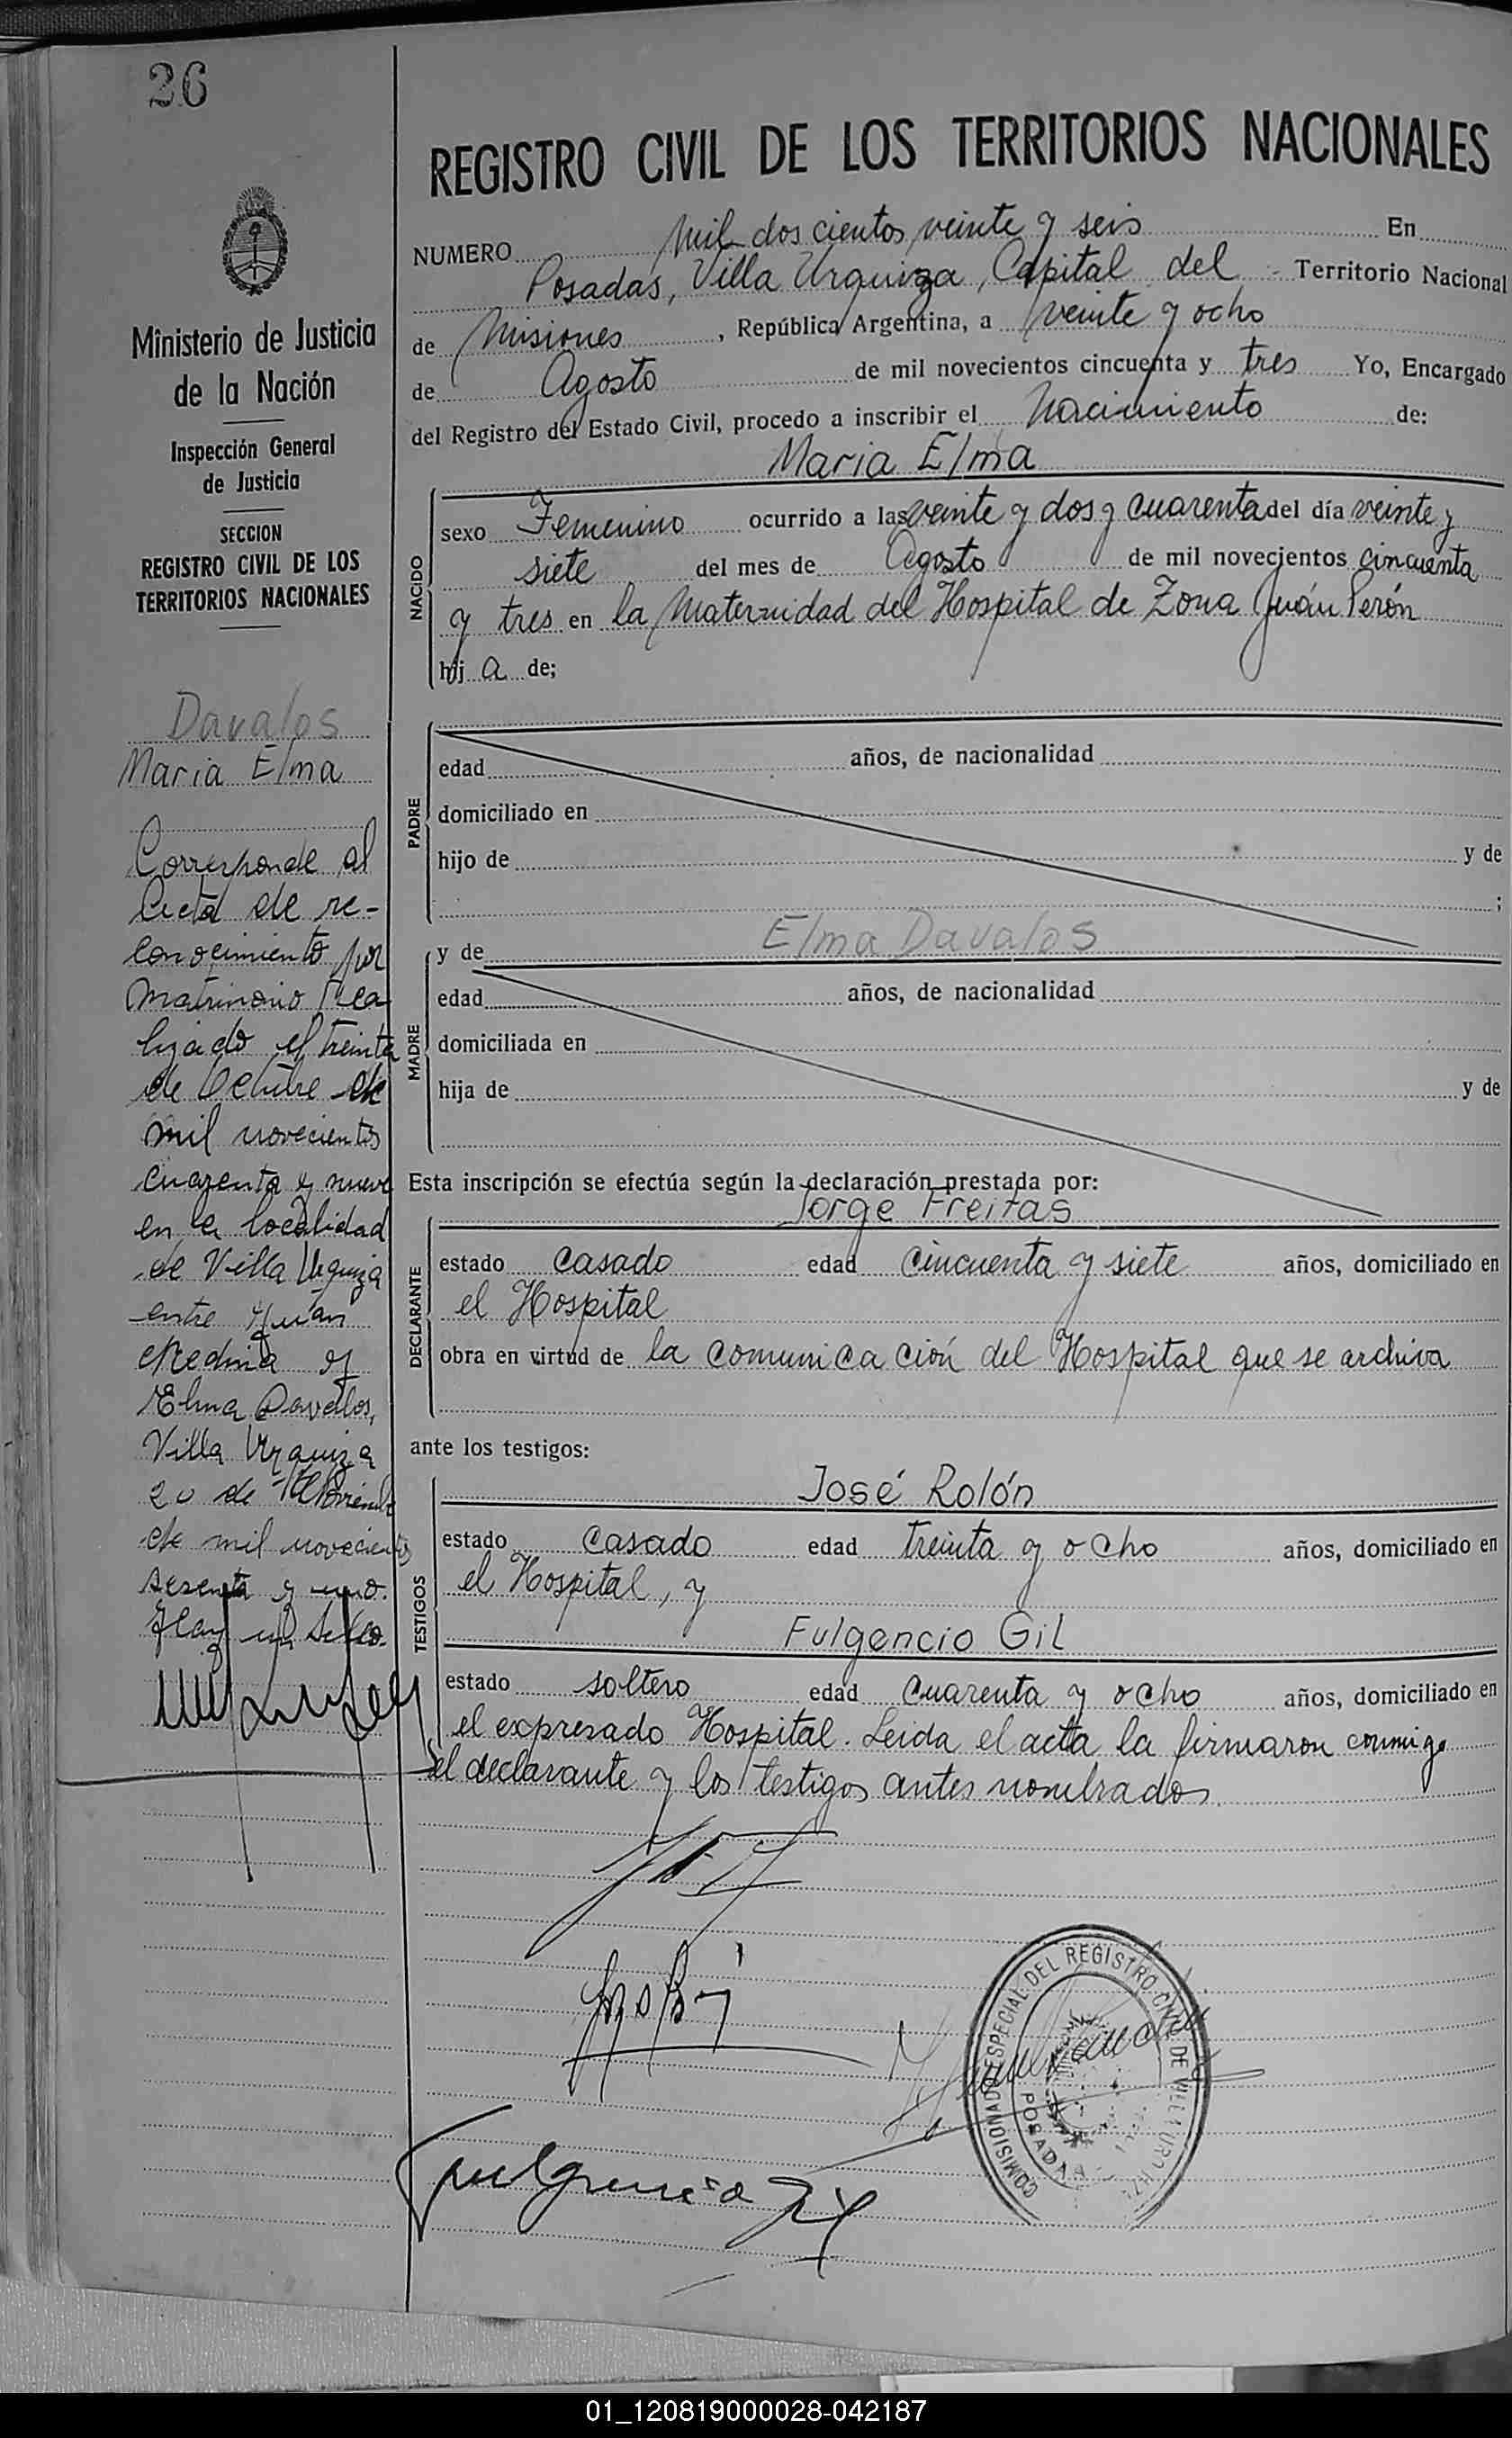 26
REGISTRO CIVIL DE LOS TERRITORIOS NACIONALES
NUMERO Mil dos cientos veinte y seis En
Posadas, Villa Urquiza, Capital del Territorio Nacional
de Misiones, República Argentina, a veinte y ocho
de Agosto de mil novecientos cincuenta y tres Yo, Encargado
del Registro del Estado Civil, procedo a inscribir el Nacimiento de:
Maria Elma
NACIDO
sexo Femenino ocurrido a las veinte y dos y cuarenta del día veinte y
siete del mes de Agosto de mil novecientos cincuenta
y tres en la Maternidad del Hospital de Zona Juán Perón
hij a de;
PADRE
edad años, de nacionalidad
domiciliado en
hijo de y de
;
MADRE
y de Elma Davalos
edad años, de nacionalidad
domiciliada en
hija de y de
Esta inscripción se efectúa según la declaración prestada por:
Jorge Freitas
DECLARANTE
estado casado edad cincuenta y siete años, domiciliado en
el Hospital
obra en virtud de la comunicación del Hospital que se archiva
ante los testigos:
José Rolón
TESTIGOS
estado casado edad treinta y ocho años, domiciliado en
el Hospital, y
Fulgencio Gil
estado soltero edad cuarenta y ocho años, domiciliado en
el expresado Hospital. Leida el acta la firmaron conmigo
el declarante y los testigos antes nombrados.
Fulgencio Gil
COMISIONADO ESPECIAL DEL REGISTRO CIVIL DE VILLA URQUIZA
POSADAS
Ministerio de Justicia
de la Nación
Inspección General
de Justicia
SECCION
REGISTRO CIVIL DE LOS
TERRITORIOS NACIONALES
Davalos
Maria Elma
Corresponde al
Acta de re-
conocimiento por
matrimonio rea
lizado el treinta
de Octubre de
mil novecientos
cuarenta y nueve
en la localidad
de Villa Urquiza
entre Juan
Medina y
Elma Davalos,
Villa Urquiza
20 de Noviembre
de mil novecientos
sesenta y uno.
Hay un sello.
01_120819000028-042187